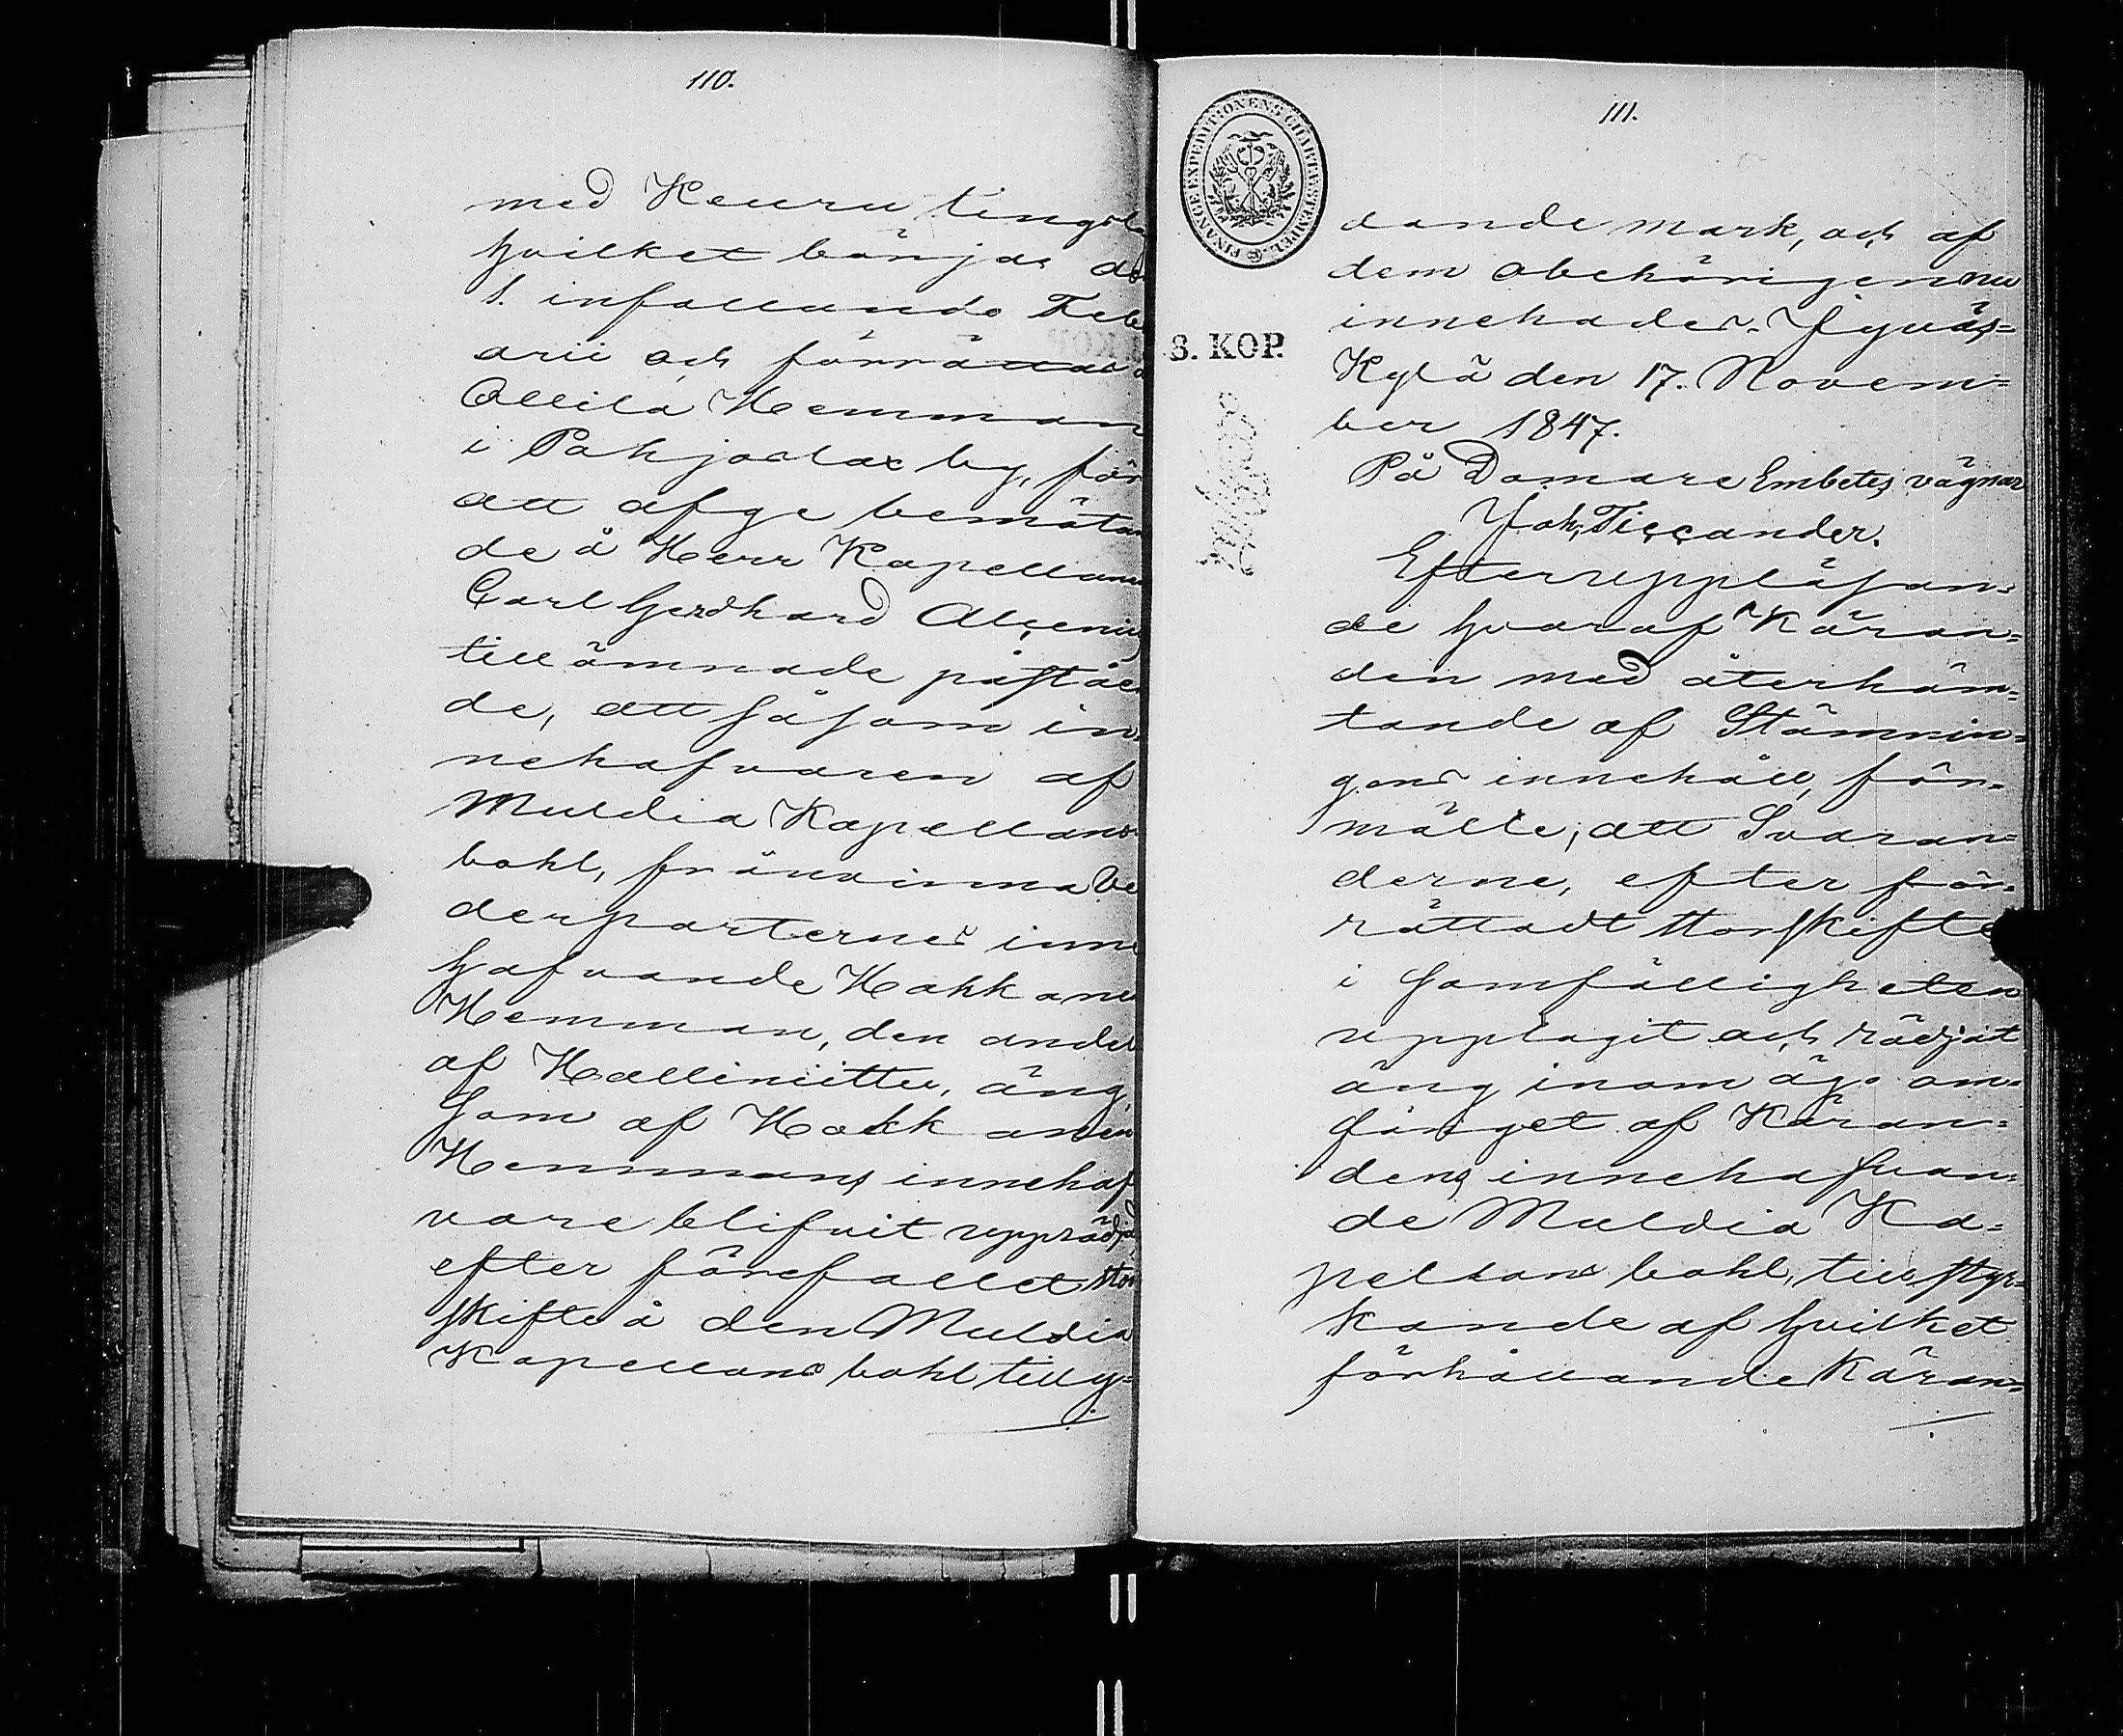 110.
med Keuru tingsla
hvilket börjas de
1. infallande Feb
arii och förrättas å
Ollila Hemman
i Pohjoslax by, för
att afge bemötan
de å Herr Kapellanen
Carl Gerdhard Alcenii
tillämnade påståen
de, att såsom in-
nehafvaren af
Muldia Kapellans
bohl, frånvinna Ve
derparternes inne
hafvande Hokkanen
Hemman, den andel
af Halliniittu, äng,
som af Hokkanen
Hemmans innehaf
vare blifvit upprödjad
efter förefallet stor
skifte å den Muldia
Kapellans bohl tilly-
111.
FINANCE EXPEDITIONENS CHARTÆSTEMPEL.
8. KOP.
dande mark, och af
dem obehörigen nu
innehades. Jyväs-
kylä den 17. Novem-
ber 1847.
På Domare Embetes vägnar
Joh. Ticcander.
Efter uppläsan-
de hvaraf Käran-
den med återhäm-
tande af Stämnin-
gens innehåll, för-
mälte, att Svaran-
derne, efter för-
rättadt storskifte
i Samfälligheten
upptagit och rödjat
äng inom ägo om-
fånget af Käran-
dens innehafvan-
de Muldia Ka-
pellans bohl, till styr-
kande af hvilket
förhållande Käran-